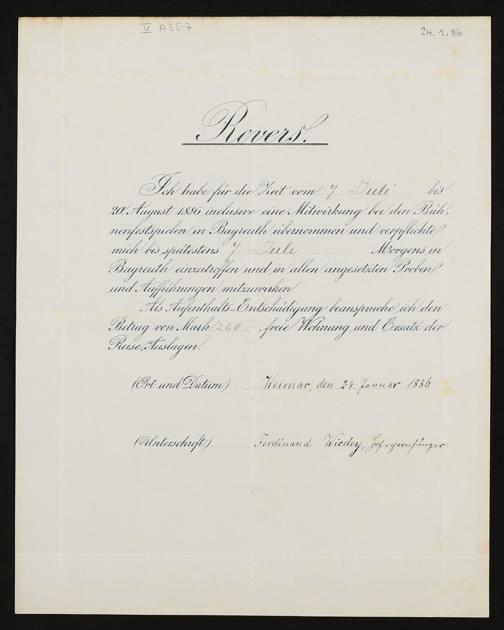 V A 35-7
24.1.86
Revers.
Ich habe für die Zeit vom 7 Juli bis
20. August 1886 inclusive eine Mitwirkung bei den Büh-
nenfestspielen in Bayreuth übernommen und verpflichte
mich bis spätestens 7 Juli Morgens in
Bayreuth einzutreffen und in allen angesetzten Proben
und Aufführungen mitzuwirken
Als Aufenthalts-Entschädigung beanspruche ich den
Betrag von Mark 260 freie Wohnung und Ersatz der
Reise-Auslagen.
(Ort und Datum) Weimar, den 24. Januar 1886
(Unterschrift.) Ferdinand Wiedey, Hofopernsänger